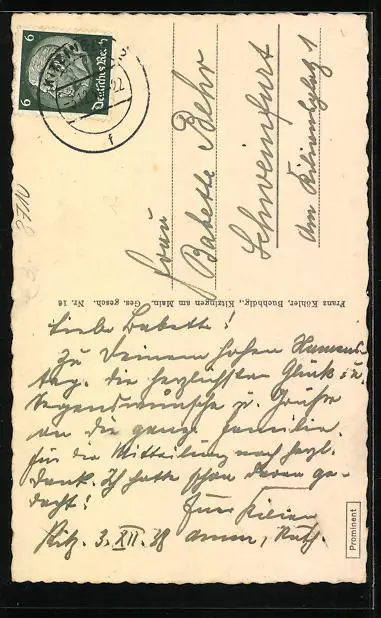 6 6
Deutsches Reich
22
f
3710
Frau
Babette Behr
Schweinfurt
Am Kiliansplatz 1
Franz Köhler, Buchhdlg., Kitzingen am Main. Ges. gesch. Nr. 16
Liebe Babette!
Zu Deinem hohen Namens-
tag, die herzlichsten Glück- u.
Segenswünsche u. Grüße
an die ganze Familie.
Für die Mitteilung noch herzl.
Dank. Ich hatte schon daran ge-
dacht!
Kilian
Kitz. 3. XII. 38 Ruth.
Prominent